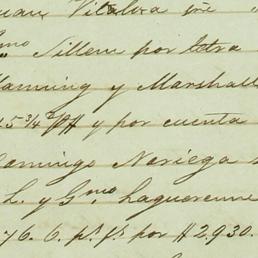 Juan Vilalva
mo Sillem por letra
Manning y Marshall
15 3/4 y por cuenta
Domingo Noriega
L. y Gmo Laguerenne
76. 6. ps. fs por $ 2.930.